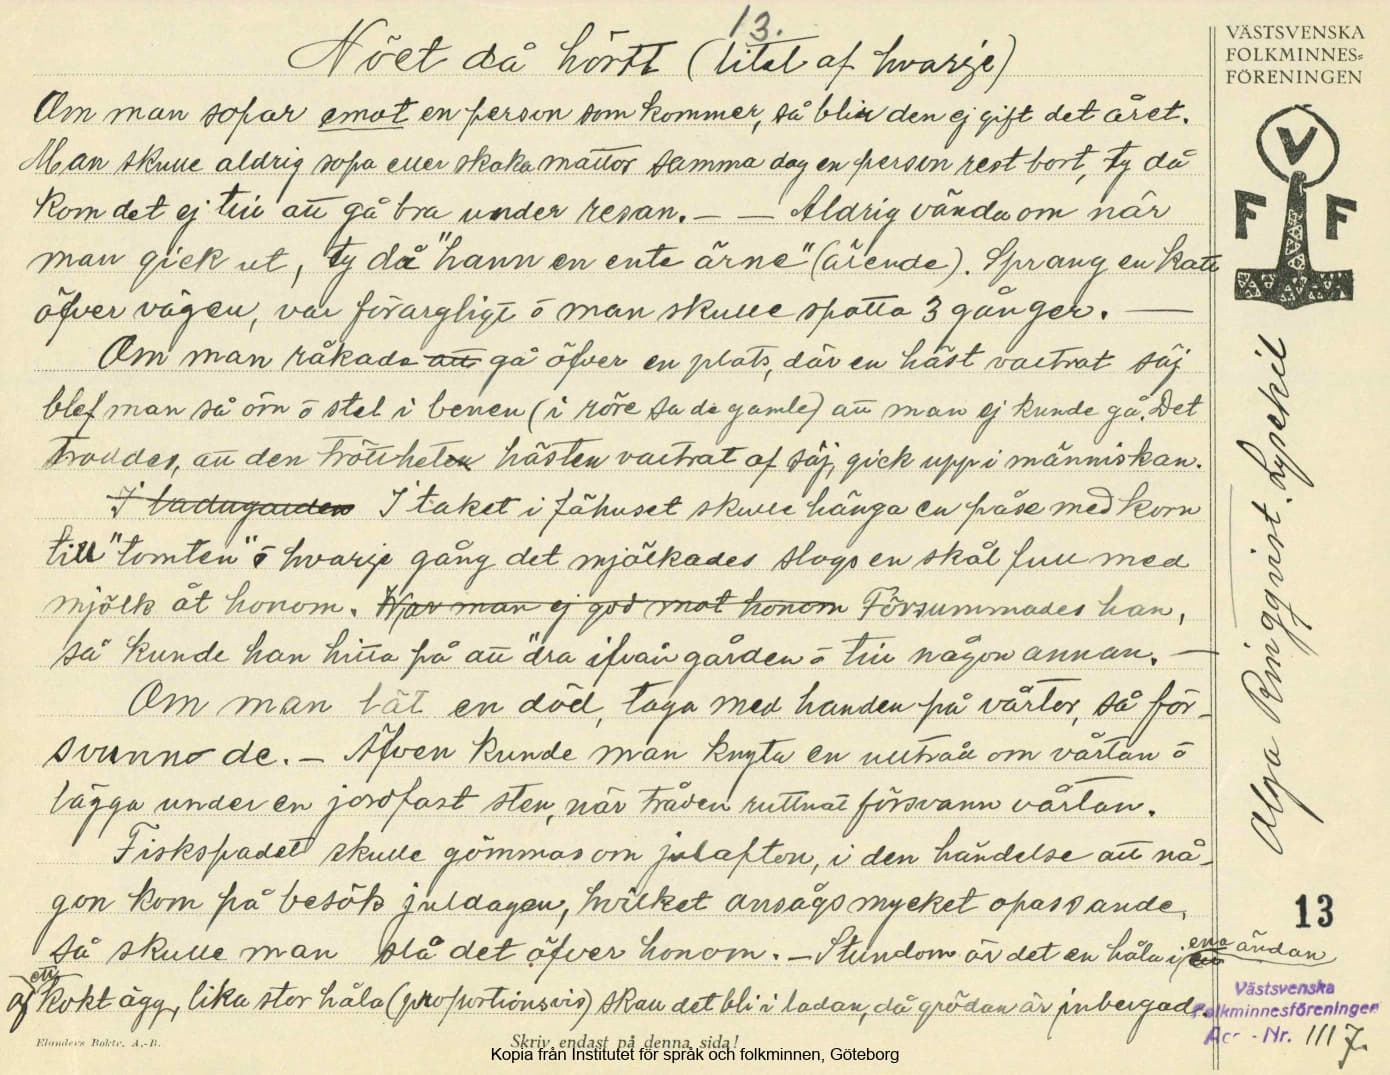 13.
Nöet då hörtt (litet af hvarje)
Om man sopar emot en person som kommer, så blir den ej gift det året.
Man skulle aldrig sopa eller skaka mattor samma dag en person rest bort, ty då
kom det ej till att gå bra under resan. — — Aldrig vända om när
man gick ut, ty då "hann en ente ärne" (ärende). Sprang en katt
öfver vägen, var förargligt ō man skulle spotta 3 gånger. —
Om man råkade att gå öfver en plats, där en häst vältrat säj
blef man så öm ō stel i benen (i röre sa de gamle) att man ej kunde gå. Det
troddes, att den tröttheten hästen vältrat af säj, gick upp i människan.
I ladugården I taket i fähuset skulle hänga en påse med korn
till "tomten" ō hvarje gång det mjölkades slogs en skål full med
mjölk åt honom. War man ej god mot honom Försummades han,
så kunde han hitta på att "dra ifrån gården ō till någon annan. —
Om man lät en död, taga med handen på vårtor, så för-
svunno de. — Äfven kunde man knyta en ulltråd om vårtan ō
lägga under en jordfast sten, när tråden ruttnat försvann vårtan.
Fiskspadet skulle gömmas om julafton, i den händelse att nå-
gon kom på besök juldagen, hvilket ansågs mycket opassande,
så skulle man slå det öfver honom. — Stundom är det en håla i ena ändan
af ett kokt ägg, lika stor håla (proportionsvis) skall det bli i ladan, då grödan är inbergad.
VÄSTSVENSKA
FOLKMINNES=
FÖRENINGEN
V
F F
Alga Ringqvist. Lysekil
13
Västsvenska
Folkminnesföreningen
Acc.-Nr. 1117.
Elanders Boktr. A.-B.
Skriv endast på denna sida!
Kopia från Institutet för språk och folkminnen, Göteborg